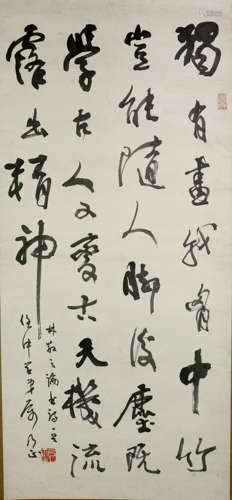 獨有畫我胸中竹
豈能隨人脚後塵既
學古人又變古天機流
露出精神
林散之論書詩一首
任中 屬乃正